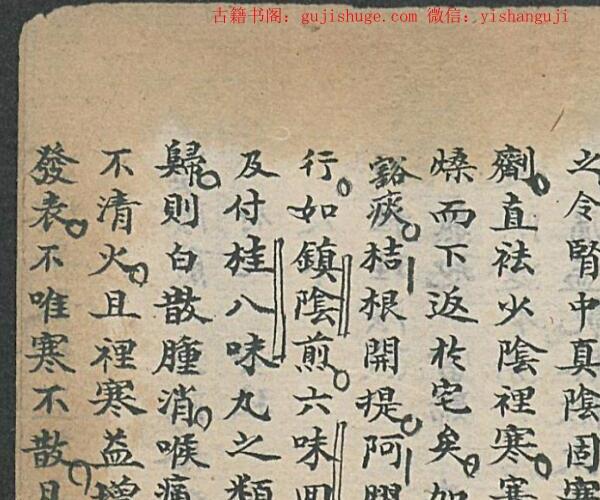 古籍书阁：gujishuge.com 微信：yishanguji
之令腎中真陰固
劑直祛少陰裡寒
燥而下返於宅矣
豁痰桔根開提阿膠
行如鎮陰煎六味
及付桂八味丸之類
歸則白散腫消喉痛
不清火且裡寒益增
發表不唯寒不散且